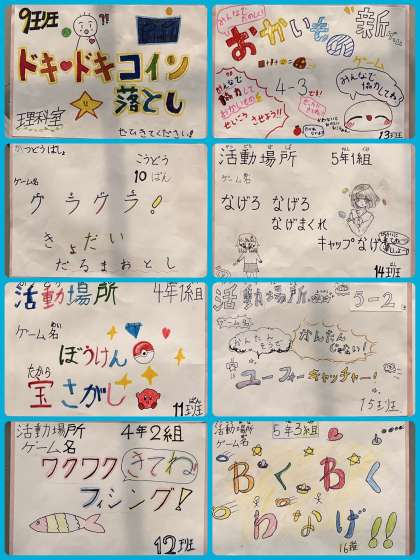 9班
ドキ・ドキコイン
落とし
理科室
ぜひきてください!
みんなでたのしい!
新
おかいもの
ゲーム
みんなで
協力して
おかいものを
せいこう
させよう!!
4-3です!
みんなで
協力してね!
13班
かつどうばしょ
こうどう
10ぱん
ゲーム名
グラグラ!
きょだい
だるまおとし
活動場所 5年1組
ゲーム名
なげろ なげろ
なげまくれ
キャップなげ
14班
活動場所 4年1組
ゲーム名
ぼうけん
たから
宝さがし
11班
活動場所 5-2
ゲーム名
かんたんそうで
かんたん
じゃない!
ユーフォーキャッチャー!
15班
活動場所 4年2組
ゲーム名
ワクワク きてね!
フィシング!
12班
活動場所 5年3組
ゲーム名
わなげ!!
16班